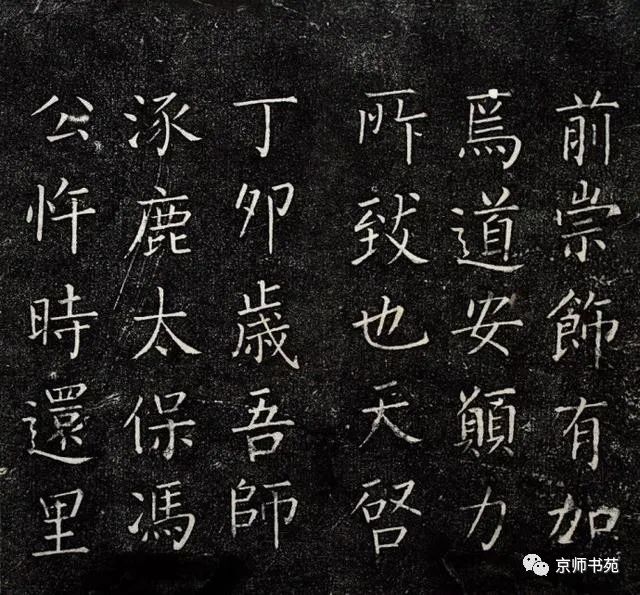 前崇飾有加
焉道安顛力
所致也天啓
丁卯歲吾師
涿鹿太保馮
公忤時還里
京师书苑